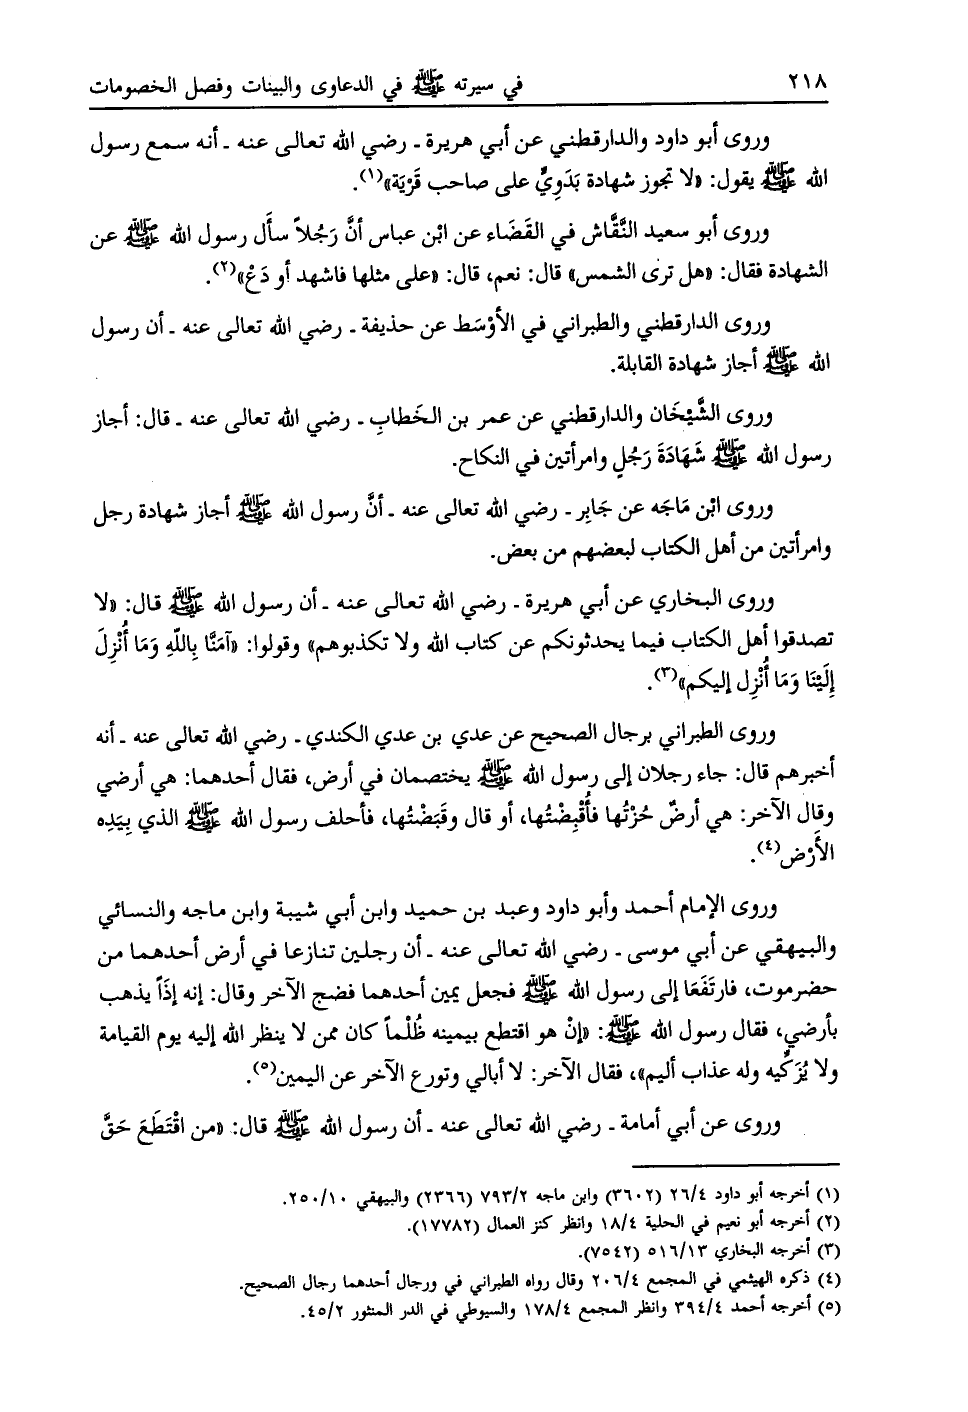 ٢١٨
في سيرته ﷺ في الدعاوى والبينات وفصل الخصومات
وروى أبو داود والدارقطني عن أبي هريرة ـ رضي الله تعالى عنه ـ أنه سمع رسول
الله ﷺ يقول: «لا تجوز شهادة بَدَوِيٍّ على صاحب قَرْيَة»(١).
وروى أبو سعيد النَّقَّاش في القَضَاء عن ابْن عباس أنَّ رَجُلاً سأَل رسول الله ﷺ عن
الشهادة فقال: «هل ترى الشمس» قال: نعم، قال: «على مثلها فاشهد أو دَعْ»(٢).
وروى الدارقطني والطبراني في الأوْسَط عن حذيفة ـ رضي الله تعالى عنه ـ أن رسول
الله ﷺ أجاز شهادة القابلة.
وروى الشَّيْخَان والدارقطني عن عمر بن الخَطابِ ـ رضي الله تعالى عنه ـ قال: أجاز
رسول الله ﷺ شَهَادَةَ رَجُلٍ وامرأتين في النكاح.
وروى ابْن مَاجَه عن جَابِر ـ رضي الله تعالى عنه ـ أنَّ رسول الله ﷺ أجاز شهادة رجل
وامرأتين من أهل الكتاب لبعضهم من بعض.
وروى البخاري عن أبي هريرة ـ رضي الله تعالى عنه ـ أن رسول الله ﷺ قال: «لا
تصدقوا أهل الكتاب فيما يحدثونكم عن كتاب الله ولا تكذبوهم» وقولوا: «آمَنَّا بِاللَّهِ وَمَا أُنْزِلَ
إِلَيْنَا وَمَا أُنْزِل إليكم»(٣).
وروى الطبراني برجال الصحيح عن عدي بن عدي الكندي ـ رضي الله تعالى عنه ـ أنه
أخبرهم قال: جاء رجلان إلى رسول الله ﷺ يختصمان في أرض، فقال أحدهما: هي أرضي
وقال الآخر: هي أرضٌ حُزْتُها فأُقْبِضْتُها، أو قال وقَبَضْتُها، فأحلف رسول الله ﷺ الذي بِيَدِه
الأَرْض(٤).
وروى الإمام أحمد وأبو داود وعبد بن حميد وابن أبي شيبة وابن ماجه والنسائي
والبيهقي عن أبي موسى ـ رضي الله تعالى عنه ـ أن رجلين تنازعا في أرض أحدهما من
حضرموت، فارتَفَعَا إلى رسول الله ﷺ فجعل يمين أحدهما فضج الآخر وقال: إنه إذَاً يذهب
بأرضي، فقال رسول الله ﷺ: «إنْ هو اقتطع بيمينه ظُلْماً كان ممن لا ينظر الله إليه يوم القيامة
ولا يُزَكِّيه وله عذاب أليم»، فقال الآخر: لا أبالي وتورع الآخر عن اليمين(٥).
وروى عن أبي أمامة ـ رضي الله تعالى عنه ـ أن رسول الله ﷺ قال: «من اقْتَطَعَ حَقَّ
(١) أخرجه أبو داود ٢٦/٤ (٣٦٠٢) وابن ماجه ٧٩٣/٢ (٢٣٦٦) والبيهقي ٢٥٠/١٠.
(٢) أخرجه أبو نعيم في الحلية ١٨/٤ وانظر كنز العمال (١٧٧٨٢).
(٣) أخرجه البخاري ٥١٦/١٣ (٧٥٤٢).
(٤) ذكره الهيثمي في المجمع ٢٠٦/٤ وقال رواه الطبراني في ورجال أحدهما رجال الصحيح.
(٥) أخرجه أحمد ٣٩٤/٤ وانظر المجمع ١٧٨/٤ والسيوطي في الدر المنثور ٤٥/٢.